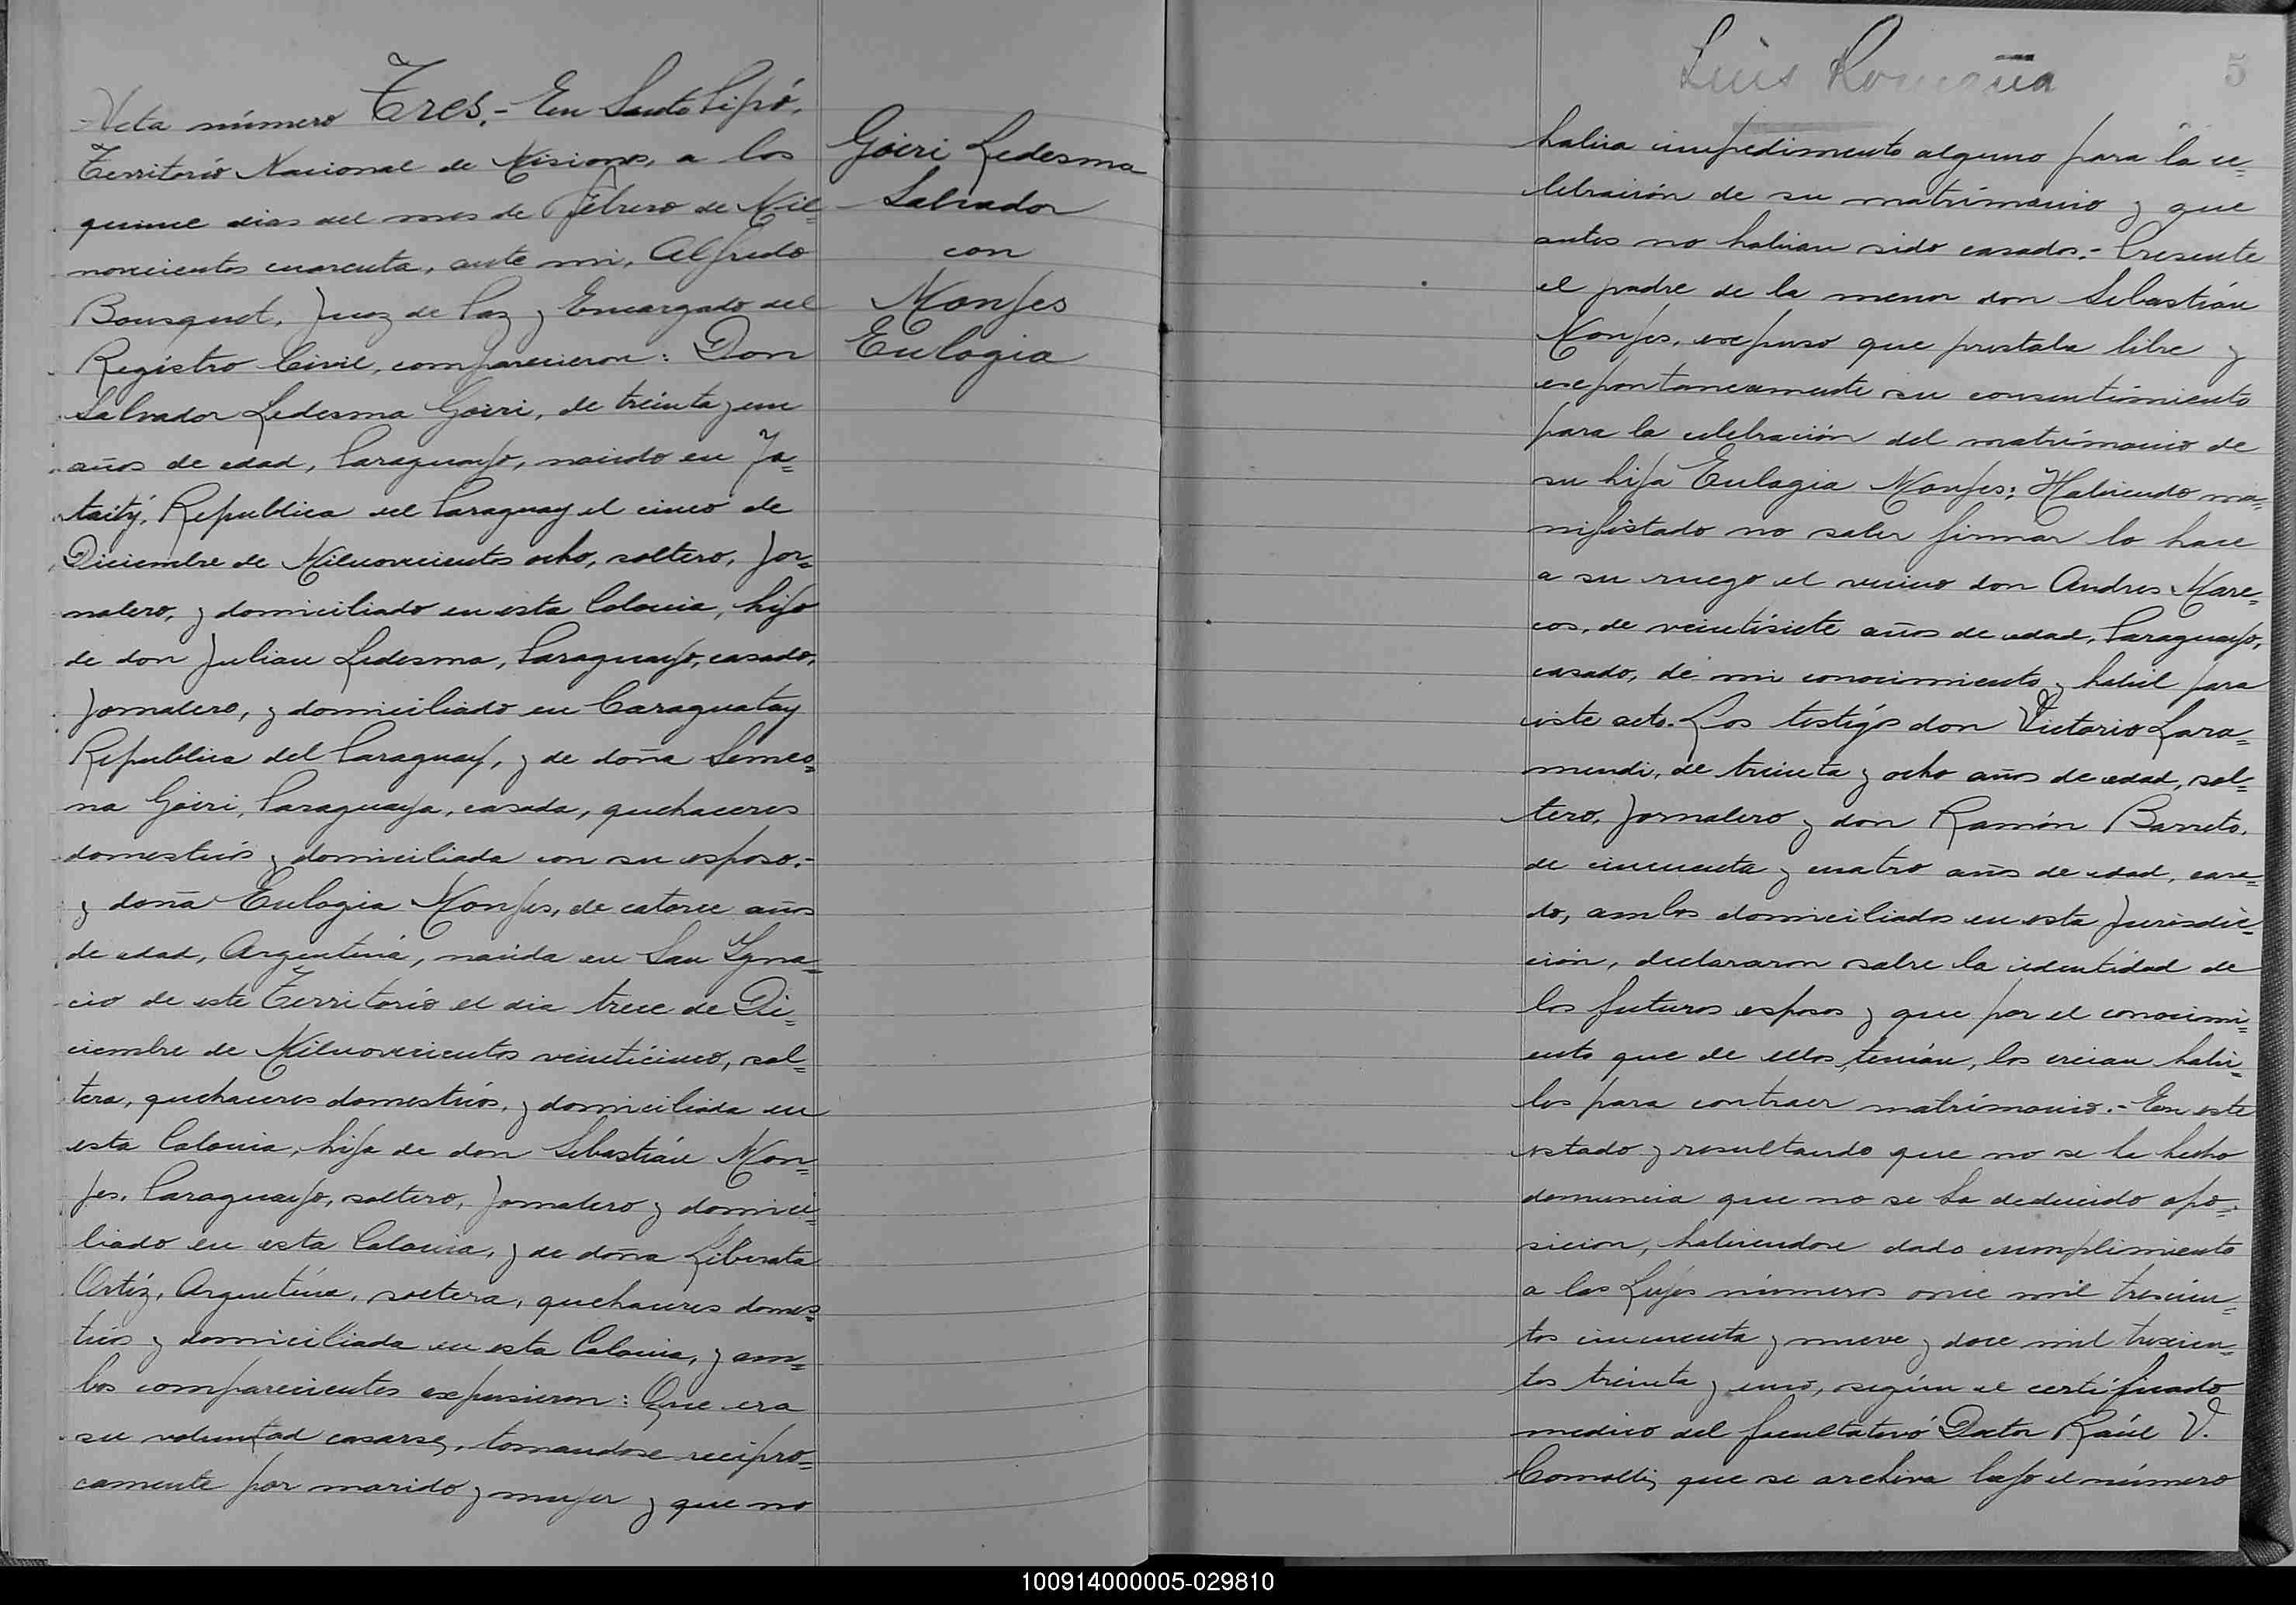 Acta número Tres.- En Santo Pipó,
Territorio Nacional de Misiones, a los
quince dias del mes de Febrero de Mil=
novecientos cuarenta, ante mi, Alfredo
Bousquet, Juez de Paz y Encargado del
Registro Civil, comparecieron: Don
Salvador Ledesma Goiri, de treinta y un
años de edad, Paraguayo, nacido en Ja=
taity, Republica del Paraguay el cinco de
Diciembre de Milnovecientos ocho, soltero, Jor=
nalero, y domiciliado en esta Colonia, hijo
de don Julian Ledesma, Paraguayo, casado,
Jornalero, y domiciliado en Caraguatay
Republica del Paraguay, y de doña Simeo=
na Goiri, Paraguaya, casada, quehaceres
domesticos y domiciliada con su esposo.-
y doña Eulogia Monjes, de catorce años
de edad, Argentina, nacida en San Ygna=
cio de este Territorio el dia trece de Di=
ciembre de Milnovecientos veinticinco, sol=
tera, quehaceres domesticos, y domiciliada en
esta Colonia, hija de don Sebastián Mon=
jes, Paraguayo, soltero, Jornalero y domici=
liado en esta Colonia, y de doña Liberata
Ortiz, Argentina, soltera, quehaceres domes=
ticos y domiciliada en esta Colonia, y am=
bos comparecientes expusieron: Que era
su voluntad casarse, tomandose recipro=
camente por marido y mujer y que no
Goiri Ledesma
Salvador
con
Monjes
Eulogia
Luis Romaña
5
habia impedimento alguno para la ce=
lebración de su matrimonio y que
antes no habian sido casados.- Presente
el padre de la menor don Sebastián
Monjes, expuso que prestaba libre y
expontaneamente su consentimiento
para la celebración del matrimonio de
su hija Eulogia Monjes; Habiendo ma=
nifestado no saber firmar lo hace
a su ruego el vecino don Andres Mare=
cos, de veintisiete años de edad, Paraguayo,
casado, de mi conocimiento y habil para
este acto. Los testigos don Victorio Lara=
mendi, de treinta y ocho años de edad, sol=
tero, Jornalero y don Ramón Barreto,
de cincuenta y cuatro años de edad, casa=
do, ambos domiciliados en esta Jurisdic=
ción, declararon sobre la identidad de
los futuros esposos y que por el conocimi=
ento que de ellos tenian, los creian habi=
les para contraer matrimonio.- En este
estado y resultando que no se ha hecho
denuncia que no se ha deducido opo=
sicion, habiendose dado cumplimiento
a las Leyes números once mil trescien=
tos cincuenta y nueve y doce mil trescien=
tos treinta y uno, según el certificado
medico del facultativo Doctor Raúl V.
Comolli, que se archiva bajo el número
100914000005-029810